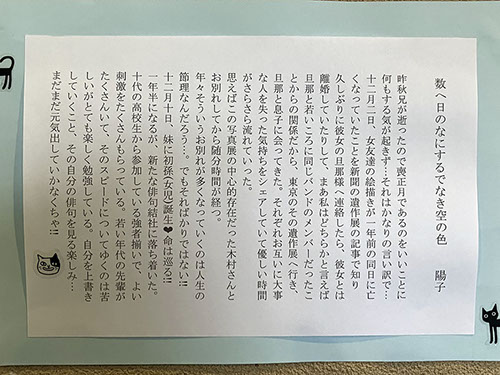 数へ日のなにするでなき空の色　　陽子
昨秋兄が逝ったので喪正月であるのをいいことに
何もする気が起きず…それはかなりの言い訳で…
十二月二日、女友達の絵描きが一年前の同日に亡
くなっていたことを新聞の遺作展の記事で知り
久しぶりに彼女の旦那様へ連絡したら、彼女とは
離婚していたりして、まあ私はどちらかと言えば
旦那と若いころに同じバンドのメンバーだったこ
とからの関係だから、東京のその遺作展へ行き、
旦那と息子に会ってきた。それぞれお互いに大事
な人を失った気持ちをシェアしていて優しい時間
がさらさら流れていった。
思えばこの写真展の中心的存在だった木村さんと
お別れしてから随分時間が経つ。
年々そういうお別れが多くなっていくのは人生の
節理なんだろう…。でもそればかりではない!!
十二月十日、妹に初孫(女児)誕生♥命は巡る!!
一年半になるが、新たな俳句結社に落ち着いた。
十代の高校生から参加している強者揃いで、よい
刺激をたくさんもらっている。若い年代の先輩が
たくさんいて、そのスピードについてゆくのは苦
しいがとても楽しく勉強している。自分を上書き
していくこと、その自分の俳句を見る楽しみ…
まだまだ元気出していかなくちゃ!!